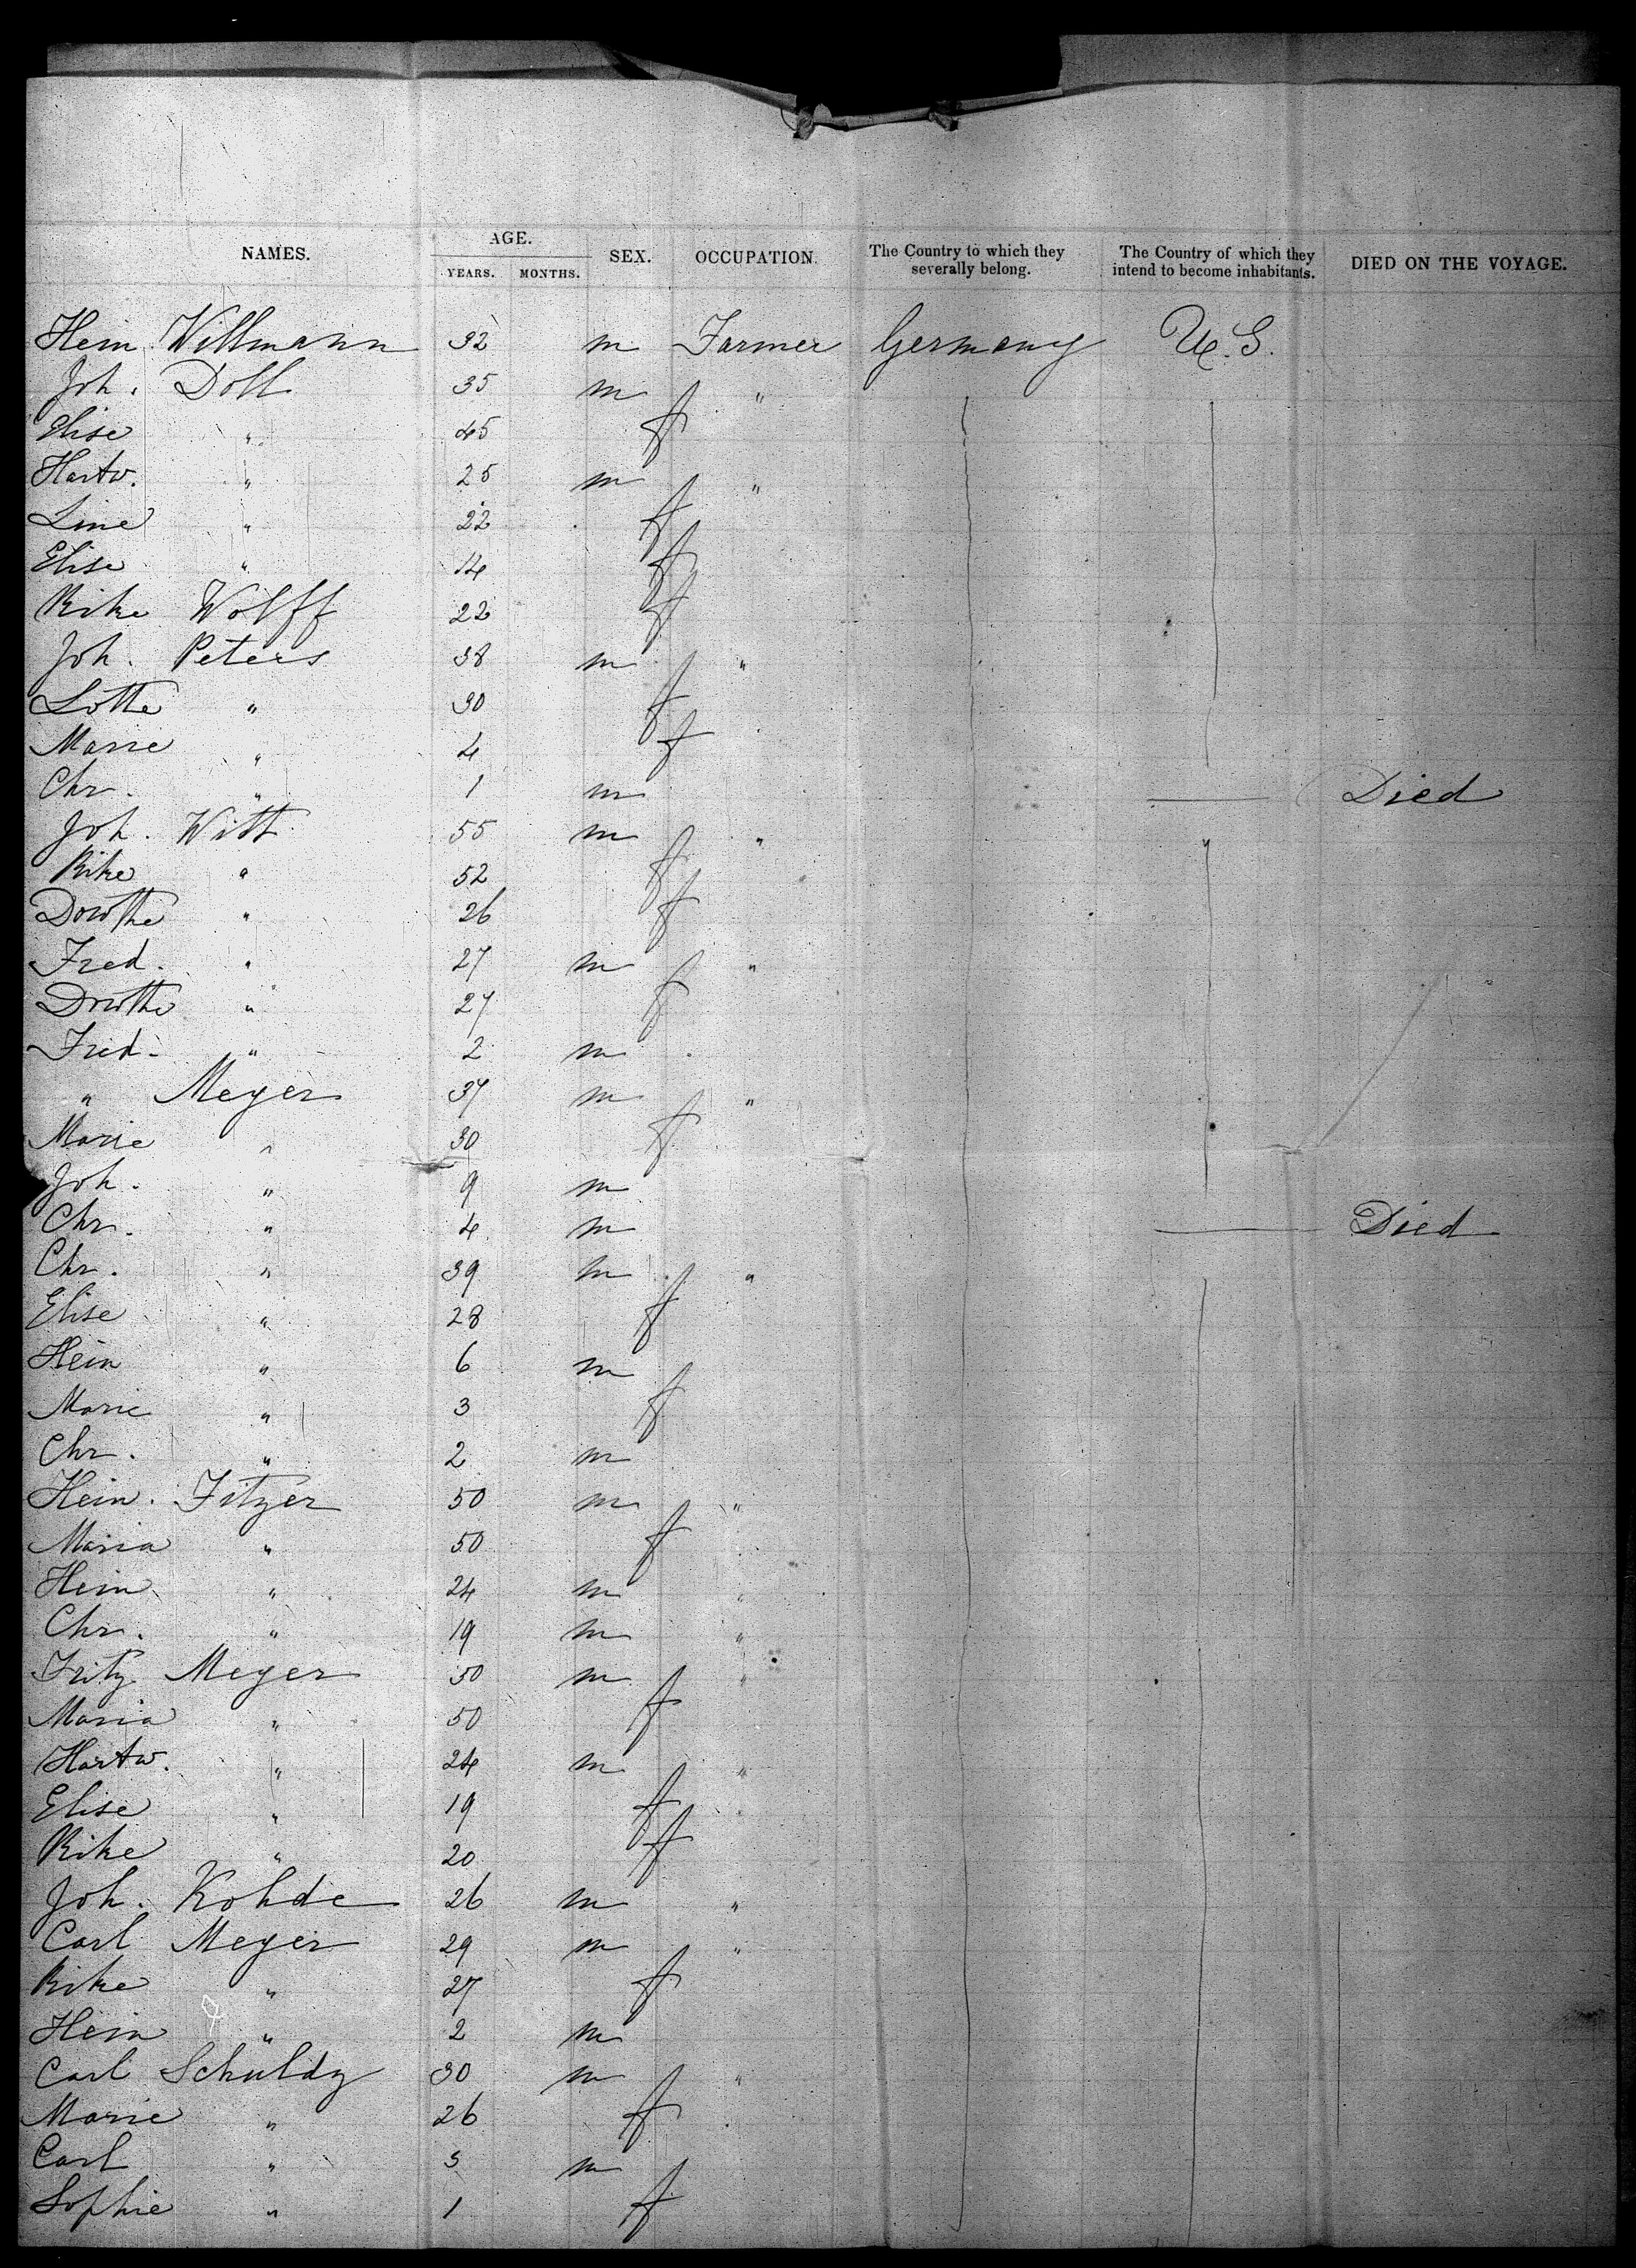 NAMES. AGE. SEX. OCCUPATION. The Country to which they severally belong. The Country of which they intend to become inhabitants. DIED ON THE VOYAGE.
YEARS. MONTHS.
Hein. Willmann 32 m Farmer Germany U.S.
Joh. Doll 35 m "
Elise " 45 f
Hartw. " 25 m "
Line " 22 f
Elise " 14 f
Rike Wolff 22 f
Joh. Peters 38 m "
Lotte " 30 f
Marie " 4 f
Chr. " 1 m Died
Joh. Witt 55 m "
Rike " 52 f
Dorothe " 26 f
Fred. " 27 m "
Dorothe " 27 f
Fred. " 2 m
" Meyer 37 m "
Marie " 30 f
Joh. " 9 m
Chr. " 4 m Died
Chr. " 39 m "
Elise " 28 f
Hein " 6 m
Marie " 3 f
Chr. " 2 m
Hein. Fitzer 50 m "
Maria " 50 f
Hein. " 24 m "
Chr. " 19 m "
Fritz Meyer 50 m "
Maria " 50 f
Hartw. " 24 m "
Elise " 19 f
Rike " 20 f
Joh. Kohde 26 m "
Carl Meyer 29 m "
Rike " 27 f
Hein " 2 m
Carl Schuldz 30 m "
Marie " 26 f
Carl " 3 m
Sophie " 1 f